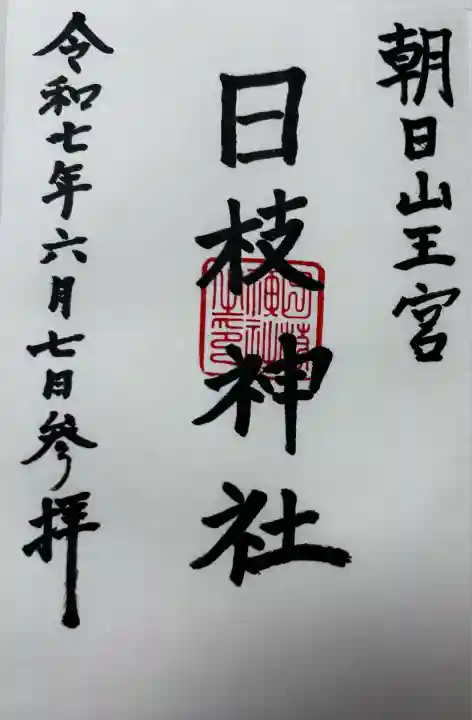 朝日山王宮
日枝神社
令和七年六月七日参拝